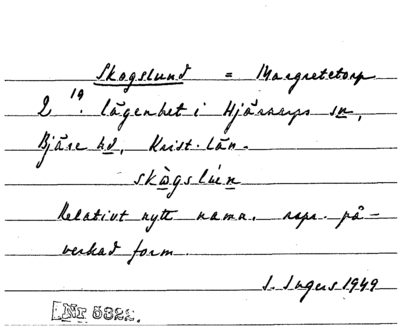 Skogslund = Margretetorp
2 19. lägenhet i Hjärnarps sn,
Bjäre hd, Krist. län.
skògslúnn
Relativt nytt namn, rspr. på-
verkad form
I. Ingers 1949
Nr 532